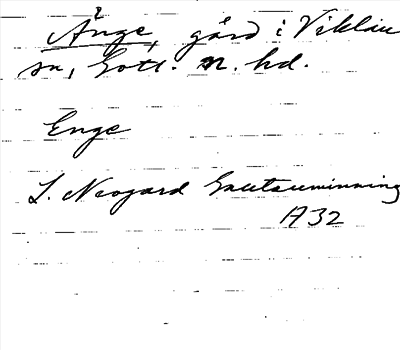 Änge, gård i Viklau
sn, Gotl. n. hd.
Enge
L. Neogard Gautauminning
A 32